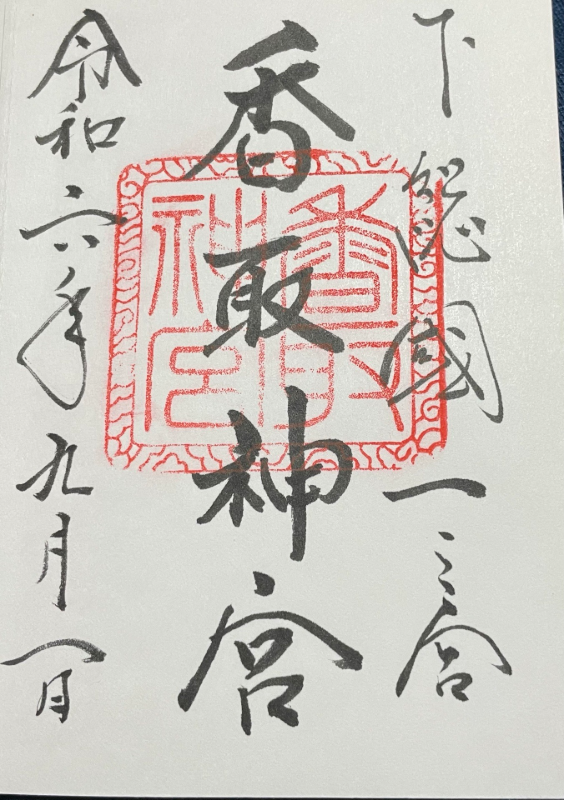 下総國一之宮
香取神宮
令和六年九月一日
香取神宮